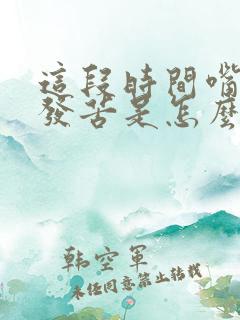 這段時間嘴
發苦是怎麼
韩空軍
未经同意禁止转载